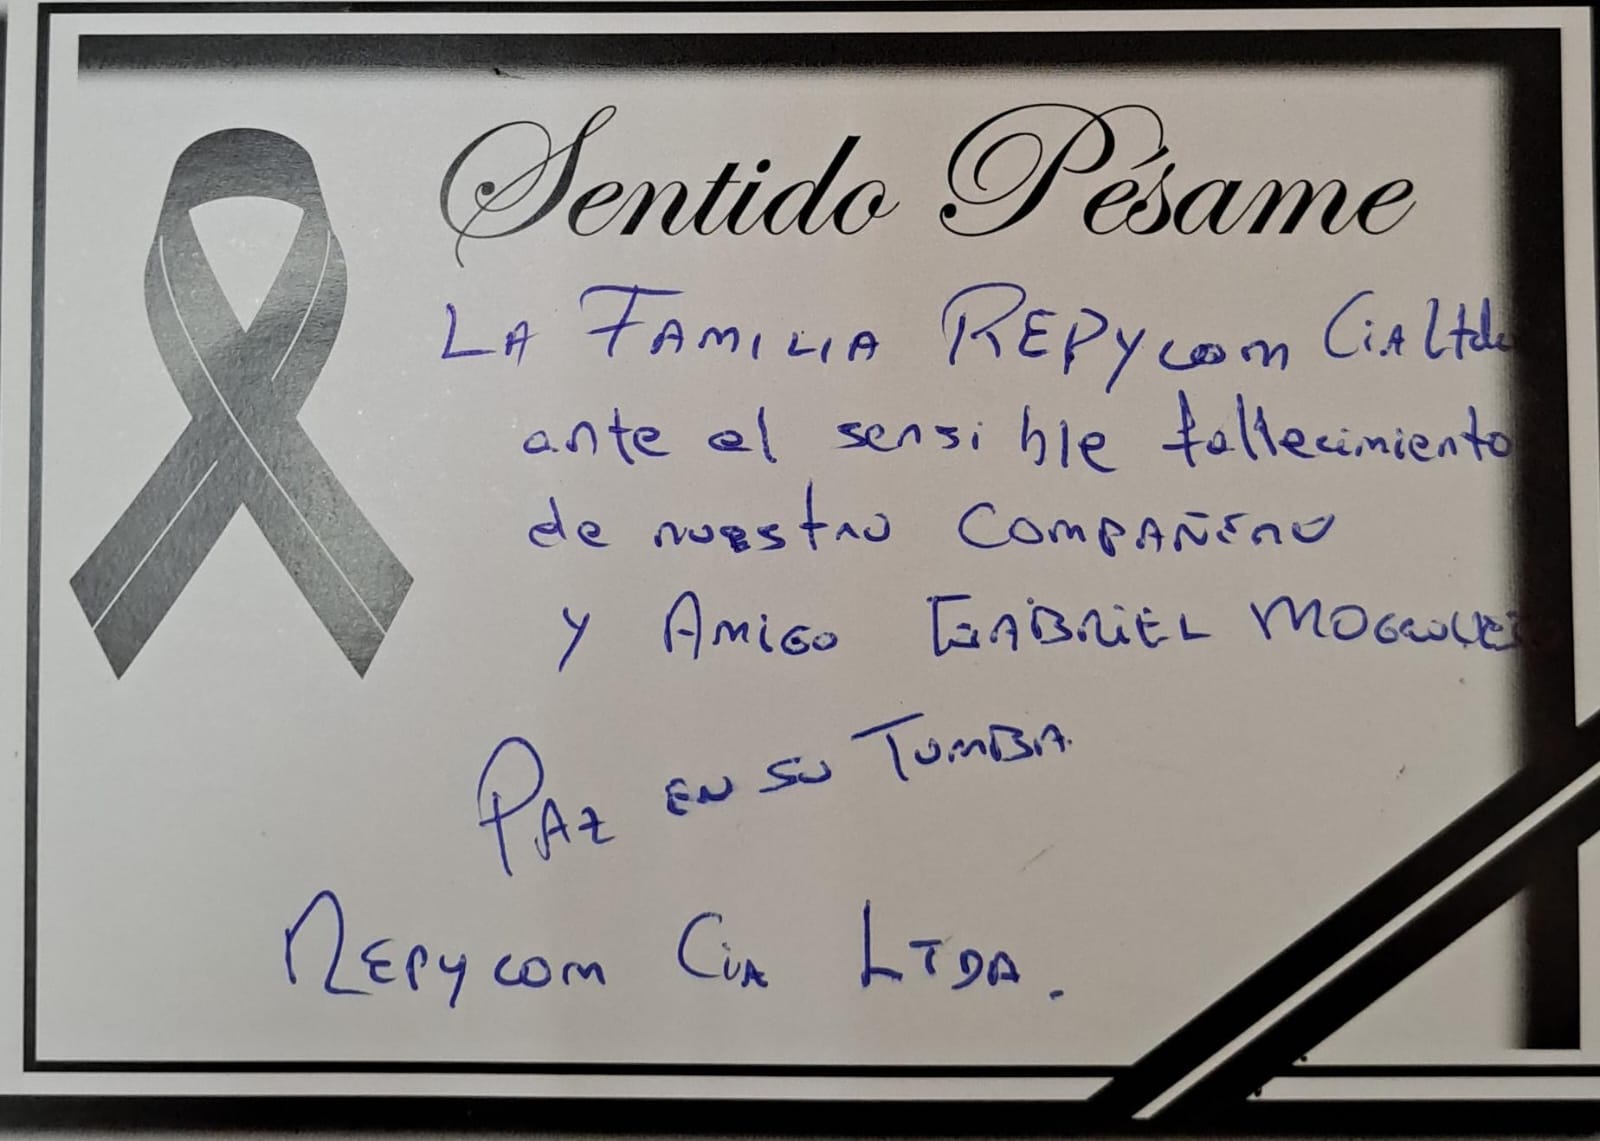 Sentido Pésame
LA FAMILIA REPYcom Cia Ltda
ante el sensible fallecimiento
de nuestro COMPAÑERO
y AMIGO GABRIEL
PAZ EN SU TUMBA.
REPYcom Cia LTDA.